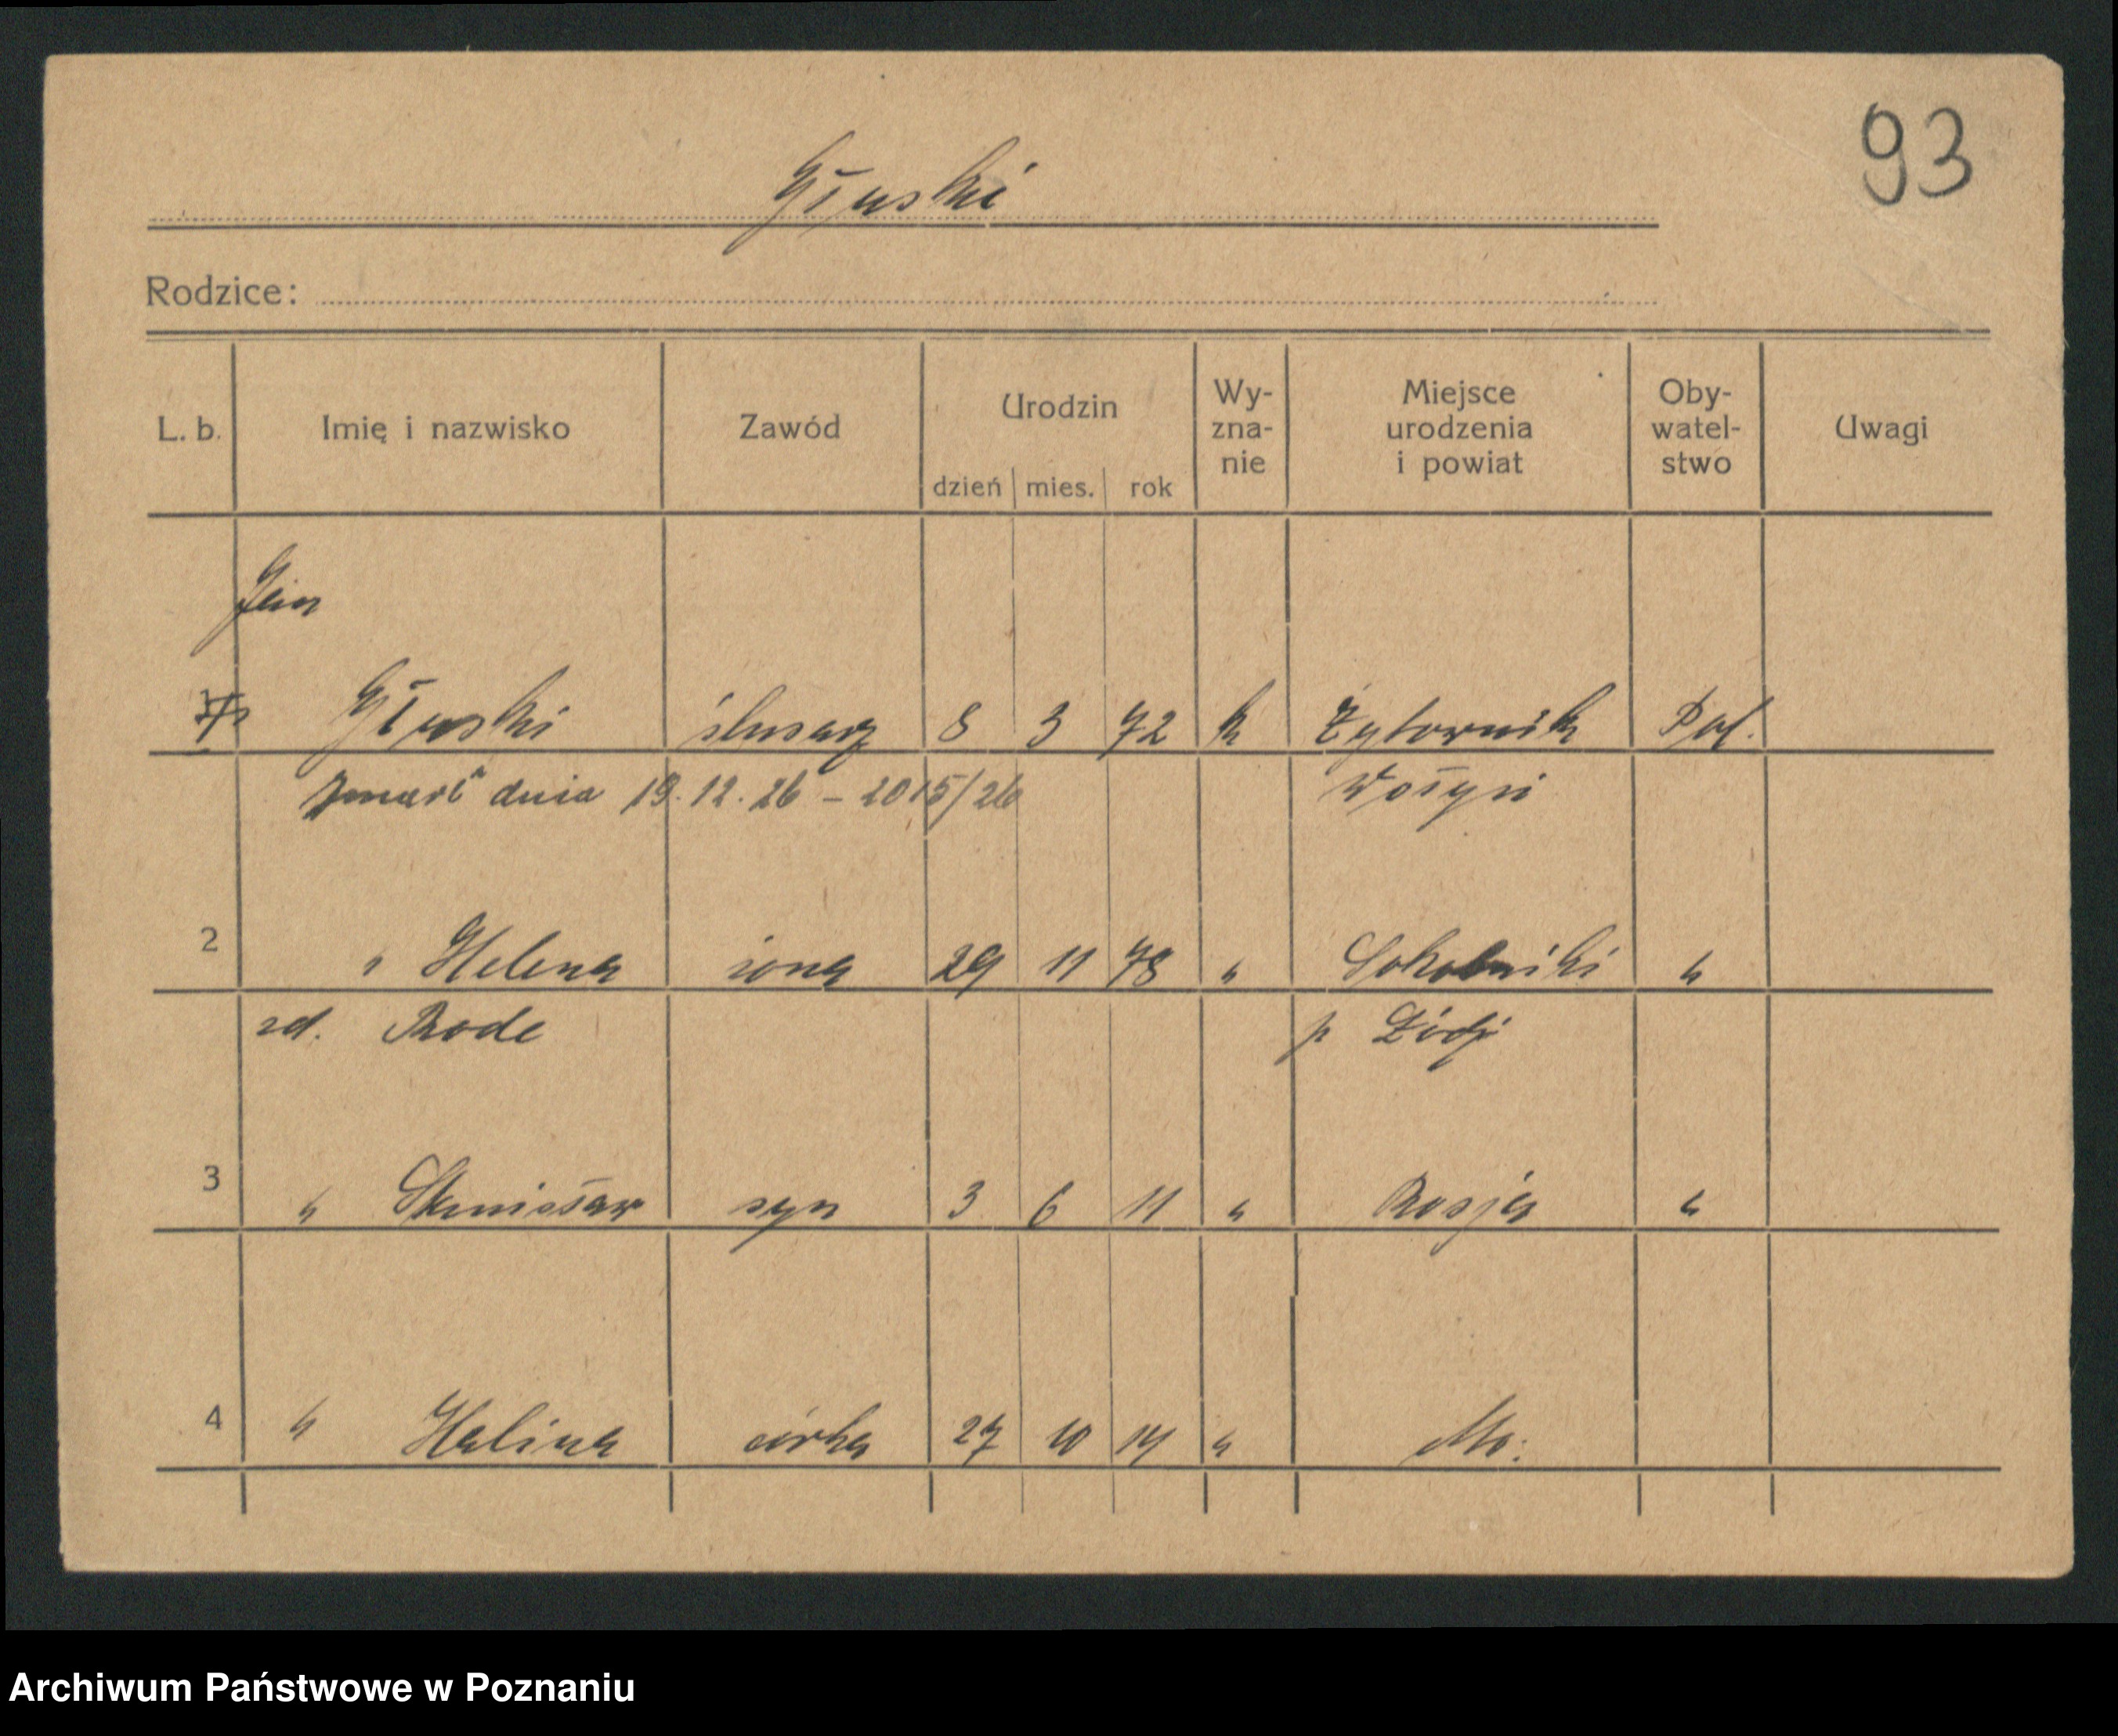 93
Głuski
Rodzice:
L. b. Imię i nazwisko Zawód Urodzin dzień mies. rok Wy-zna-nie Miejsce urodzenia i powiat Oby-watel-stwo Uwagi
Jan
1 Głuski ślusarz 8 3 72 k Żytomik Pol.
Zmarł dnia 19.12.26 – 2015/26 Wołyń
2 " Helena żona 29 11 78 " Sokolniki "
zd. Rode p Łódź
3 " Stanisław syn 3 6 11 " Rosja "
4 " Halina córka 27 10 14 "
Archiwum Państwowe w Poznaniu